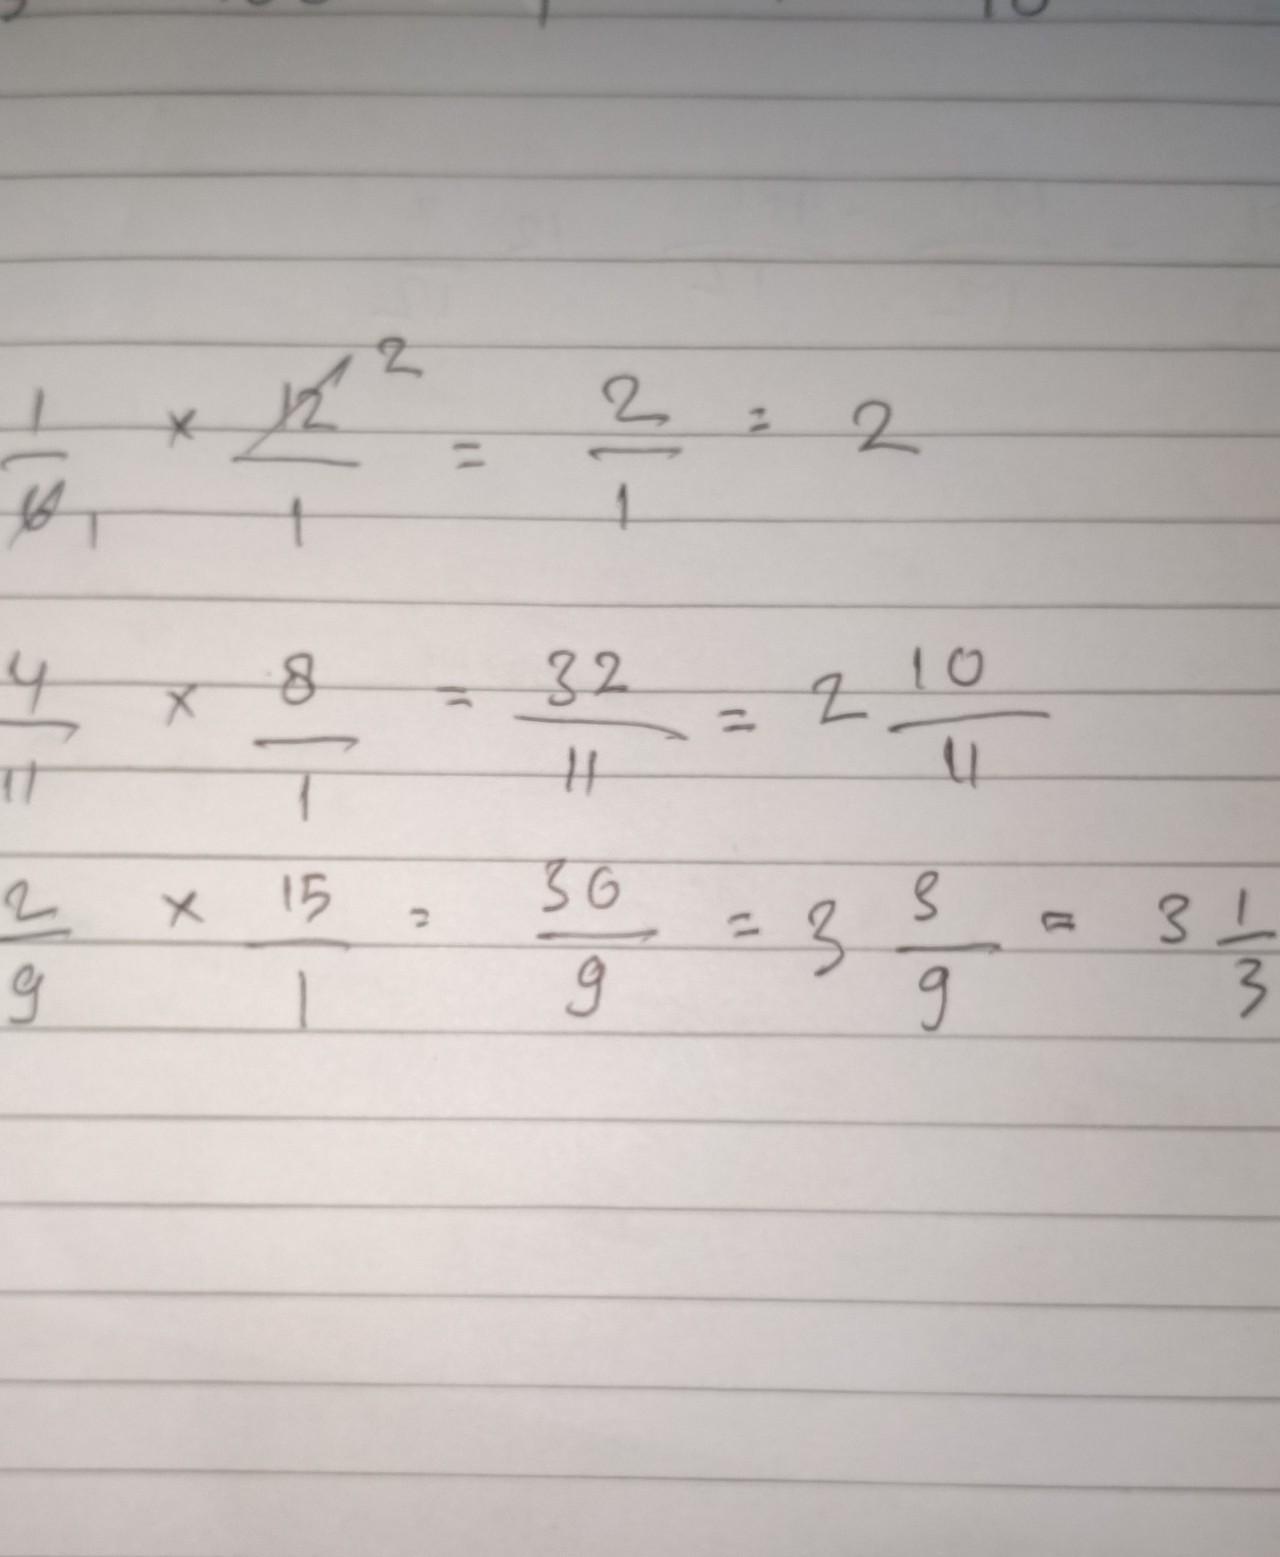 1/6 1 × 12/1 2 = 2/1 = 2
4/11 × 8/1 = 32/11 = 2 10/11
2/9 × 15/1 = 30/9 = 3 3/9 = 3 1/3